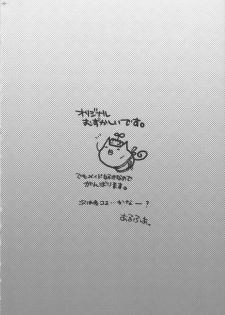 オリジナル
むずかしいです。
でもメイド好きなので
がんばります。
次は冬コミ…かなー?
あるふぁ。